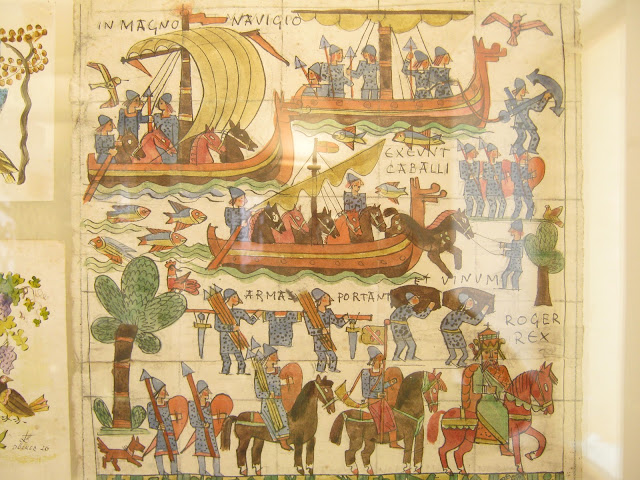 IN MAGNO NAVIGIO
EXEUNT
CABALLI
ARMAS PORTANT ET VINUM
ROGER
REX